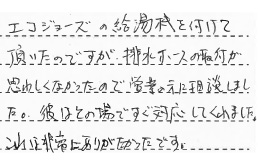 エコジョーズの給湯機を付けて
頂いたのですが、排水ホースの取付が
思わしくなかったので営業の元に相談しまし
た。彼はその場ですぐ対応してくれました。
これは非常にありがたかったです。